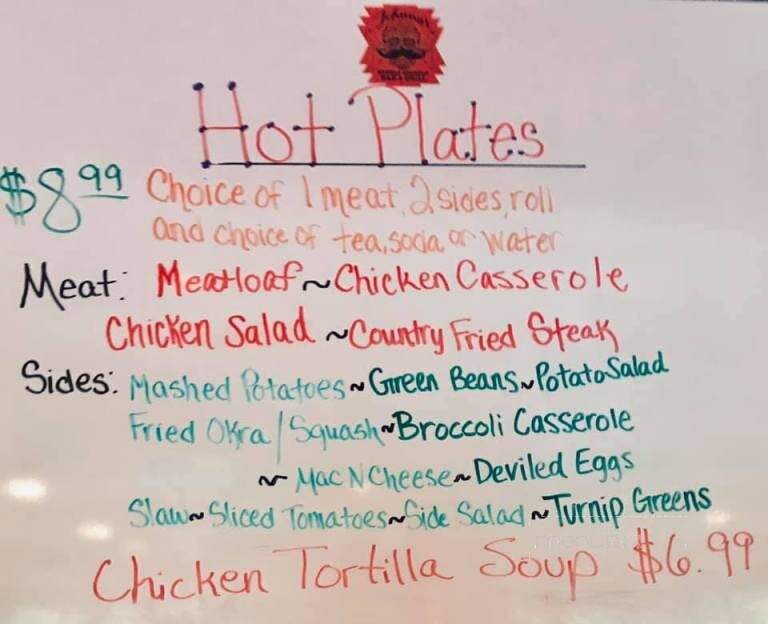 Hot Plates
$8.99 Choice of 1 meat, 2 sides, roll
and choice of tea, soda or water
Meat: Meatloaf ~ Chicken Casserole
Chicken Salad ~ Country Fried Steak
Sides: Mashed Potatoes ~ Green Beans ~ Potato Salad
Fried Okra / Squash ~ Broccoli Casserole
~ Mac N Cheese ~ Deviled Eggs
Slaw ~ Sliced Tomatoes ~ Side Salad ~ Turnip Greens
Chicken Tortilla Soup $6.99